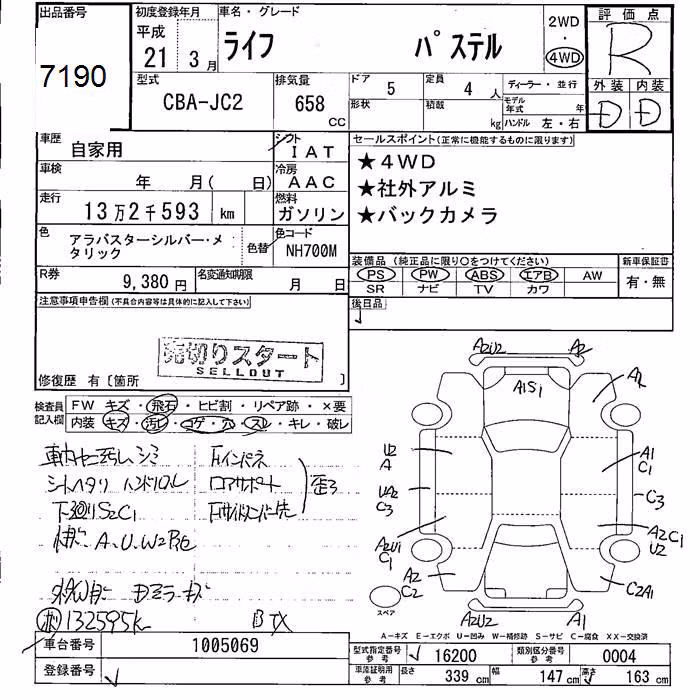 出品番号 初度登録年月 車名・グレード 2WD 評価点
7190 平成 21年 3月 ライフ パステル ・ 4WD R
型式 排気量 ドア 5 定員 4人 ディーラー・並行 外装 内装
CBA-JC2 658 CC 形状 積載 kg モデル年式 年 D D
ハンドル 左・右
車歴 自家用 シフト IAT セールスポイント(正常に機能するものに限ります)
車検 年 月( 日) 冷房 AAC ★4WD
走行 13万2千593 km 燃料 ガソリン ★社外アルミ
★バックカメラ
色 アラバスターシルバー・メタリック 色替 色コード NH700M
装備品 (純正品に限り○をつけてください) 新車保証書
PS PW ABS エアB AW 有・無
SR ナビ TV カワ
R券 9,380円 名変通知期限 月 日
後日品
注意事項申告欄(不具合内容等は具体的に記入して下さい)
売切りスタート
SELLOUT
修復歴 有〔箇所 〕
検査員記入欄 FW キズ・飛石・ヒビ割・リペア跡・×要
内装 キズ・汚レ・コゲ・穴・スレ・キレ・破レ
下廻りS2C1
A、U、W2
132595k
A2U2 A2
A1S1
A2
U2 A
A1 C1
UA2 C3
C3
A2U1 C1
A2C1 U2
A2 C2
C2A1
スペア
A2U2 A1
A-キズ E-エクボ U-凹み W-補修跡 S-サビ C-腐食 XX-交換済
車台番号 1005069 型式指定番号 参考 16200 類別区分番号 参考 0004
登録番号 車庫証明用 参考 長さ 339cm 幅 147cm 高さ 163cm